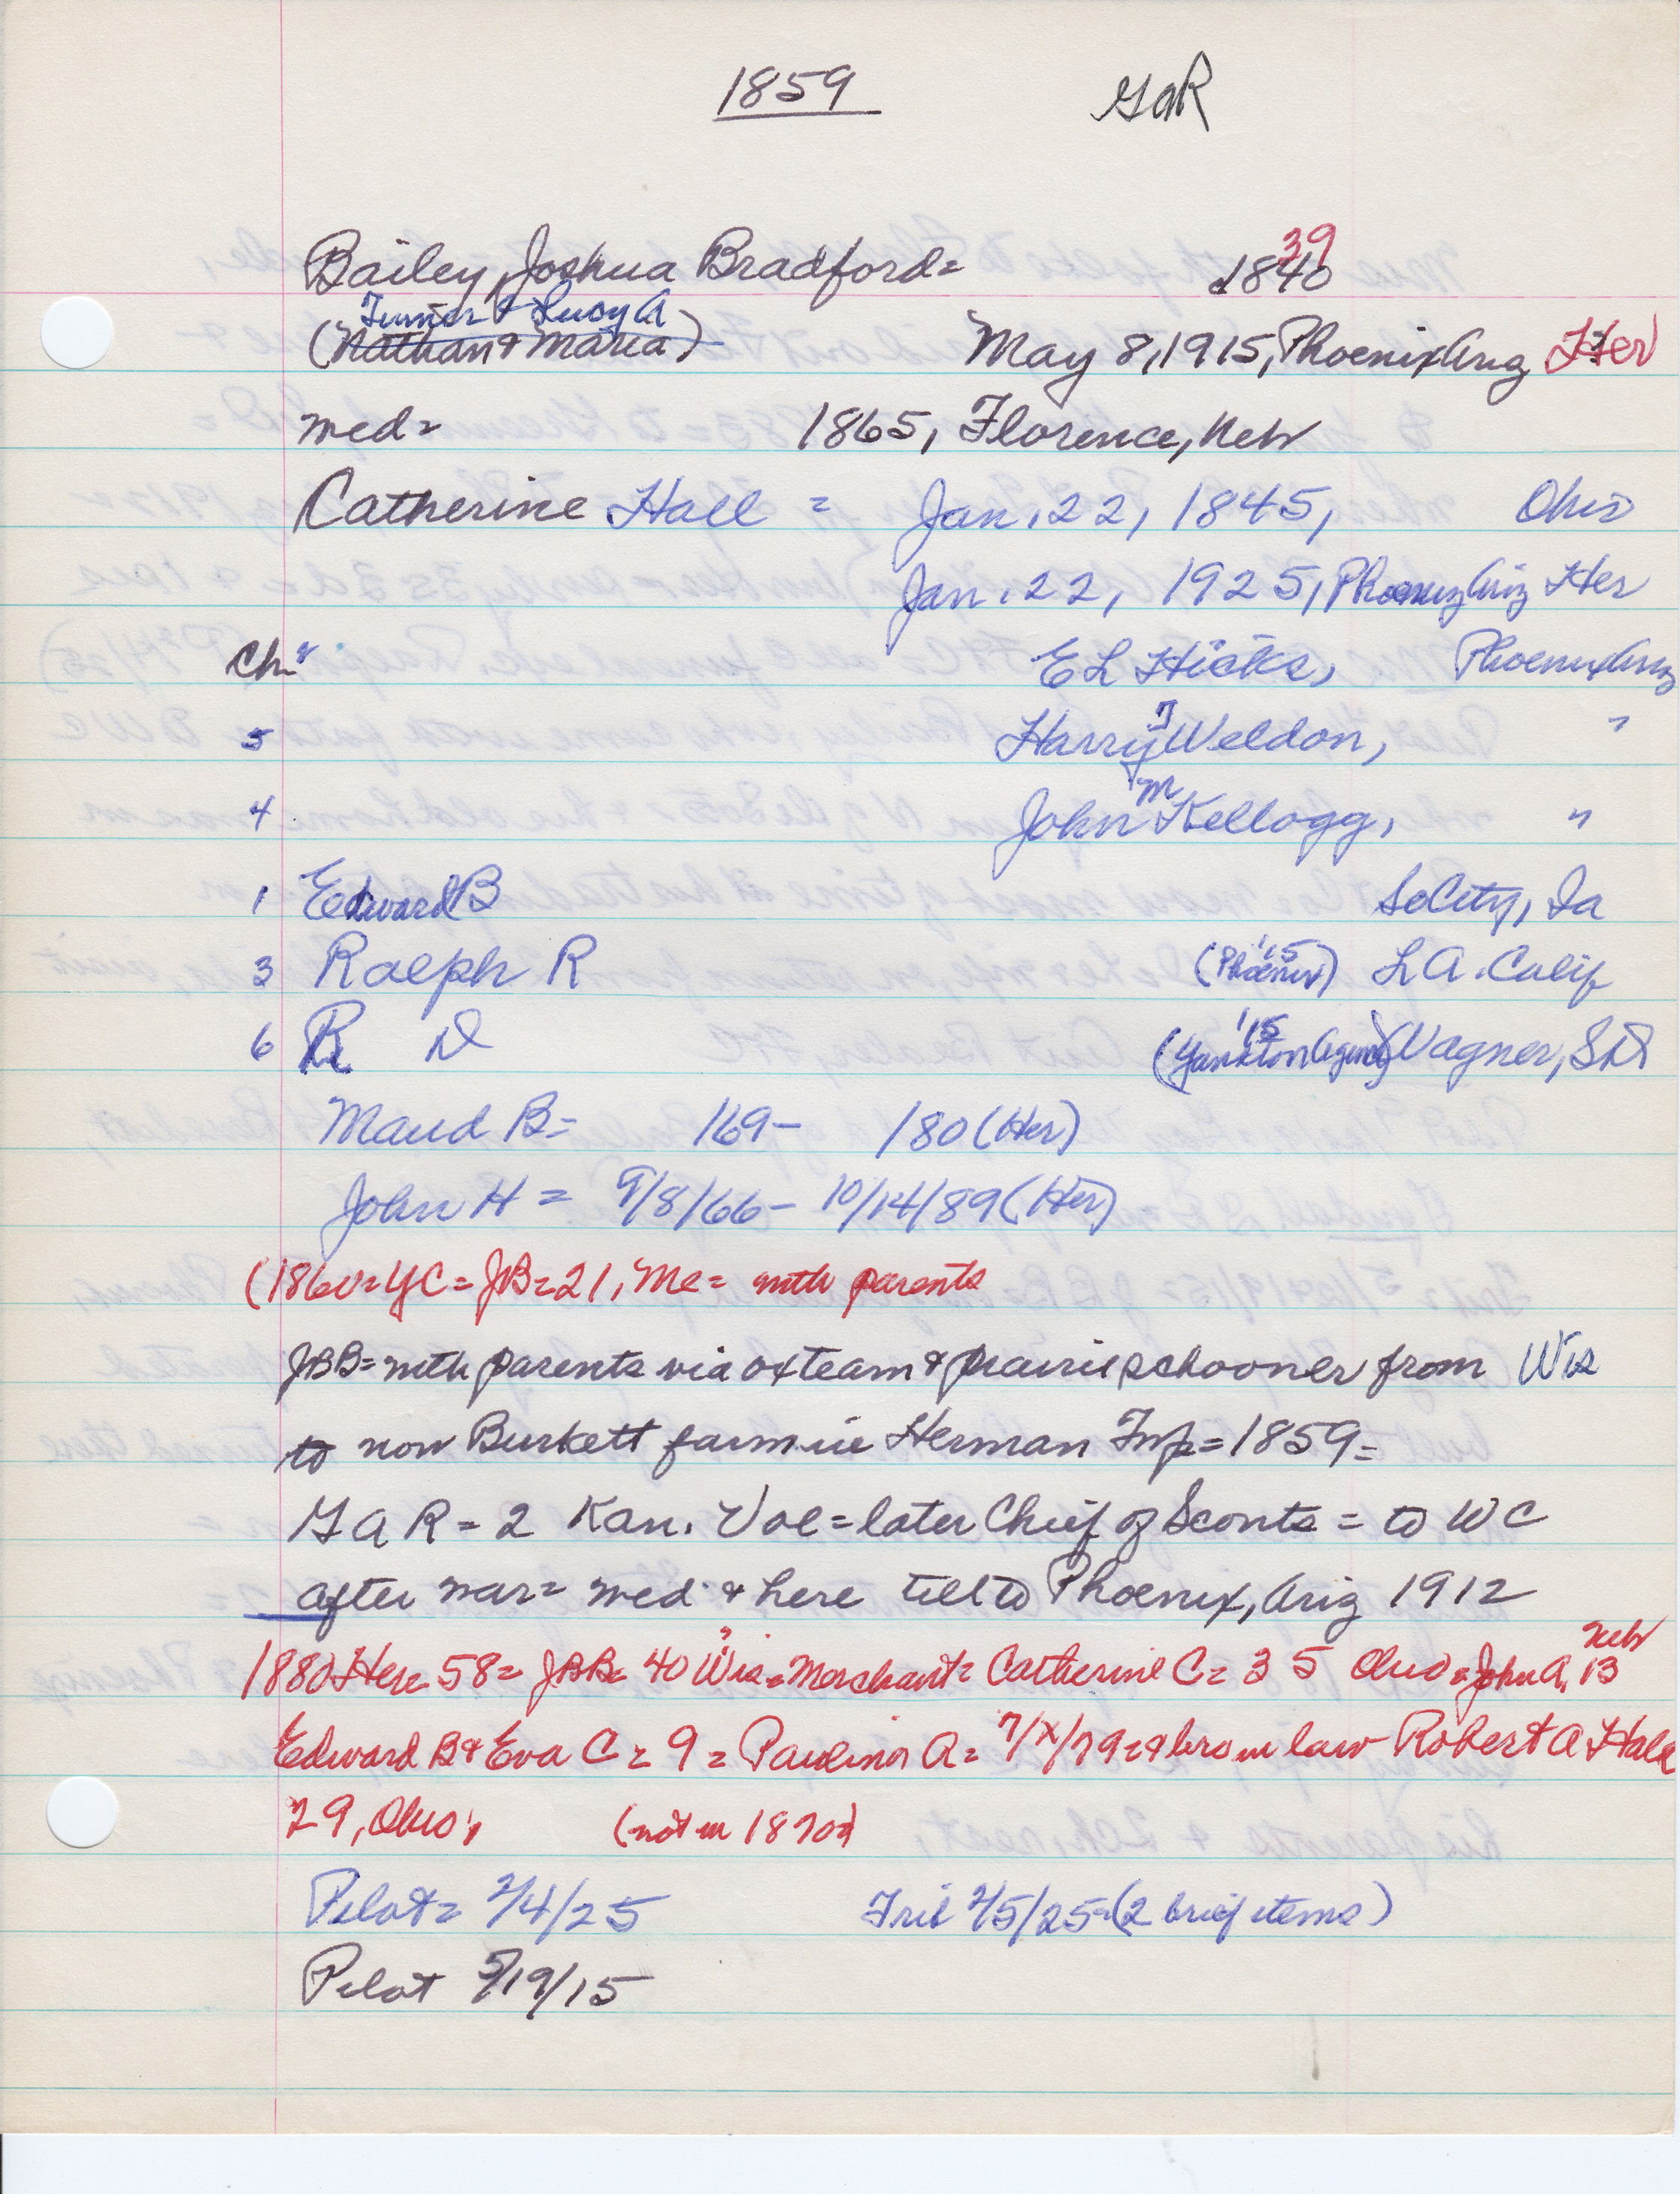 1859 GaR
Bailey, Joshua Bradford= 1840 39
Turner & Lucy A
(Nathan & Maria) May 8, 1915, Phoenix Ariz Her
med= 1865, Florence, Neb
Catherine Hall = Jan. 22, 1845, Ohio
Jan. 22, 1925, Phoenix Ariz Her
Ch= E L Hicks, Phoenix Ariz
5 Harry J Weldon, "
4 John M Kellogg, "
1 Edward B So City, Ia
3 Ralph R (Phoenix '15) L A. Calif
6 R D (Yankton Agency '15) Wagner, SD
Maud B= 169- 180 (Her)
John H = 9/8/66- 10/14/89 (Her)
(1860=YC=JB=21, Me= with parents
JBB= with parents via ox team & prairie schooner from Wis
to now Burkett farm in Herman Twp=1859=
G a R = 2 Kan. Vol = later Chief of Scouts = to W C
after war= med & here till to Phoenix, Ariz 1912
1880 Her= 58= JBB= 40 Wis= Merchant= Catherine C= 35 Ohio= John A, 13 Neb
Edward B & Eva C = 9 = Paulina A= 7/X/79= & bro in law Robert A Hall
29, Ohio, (not in 1870)
Pilot= 2/4/25 Trib 2/5/25=(2 brief items)
Pilot 5/19/15